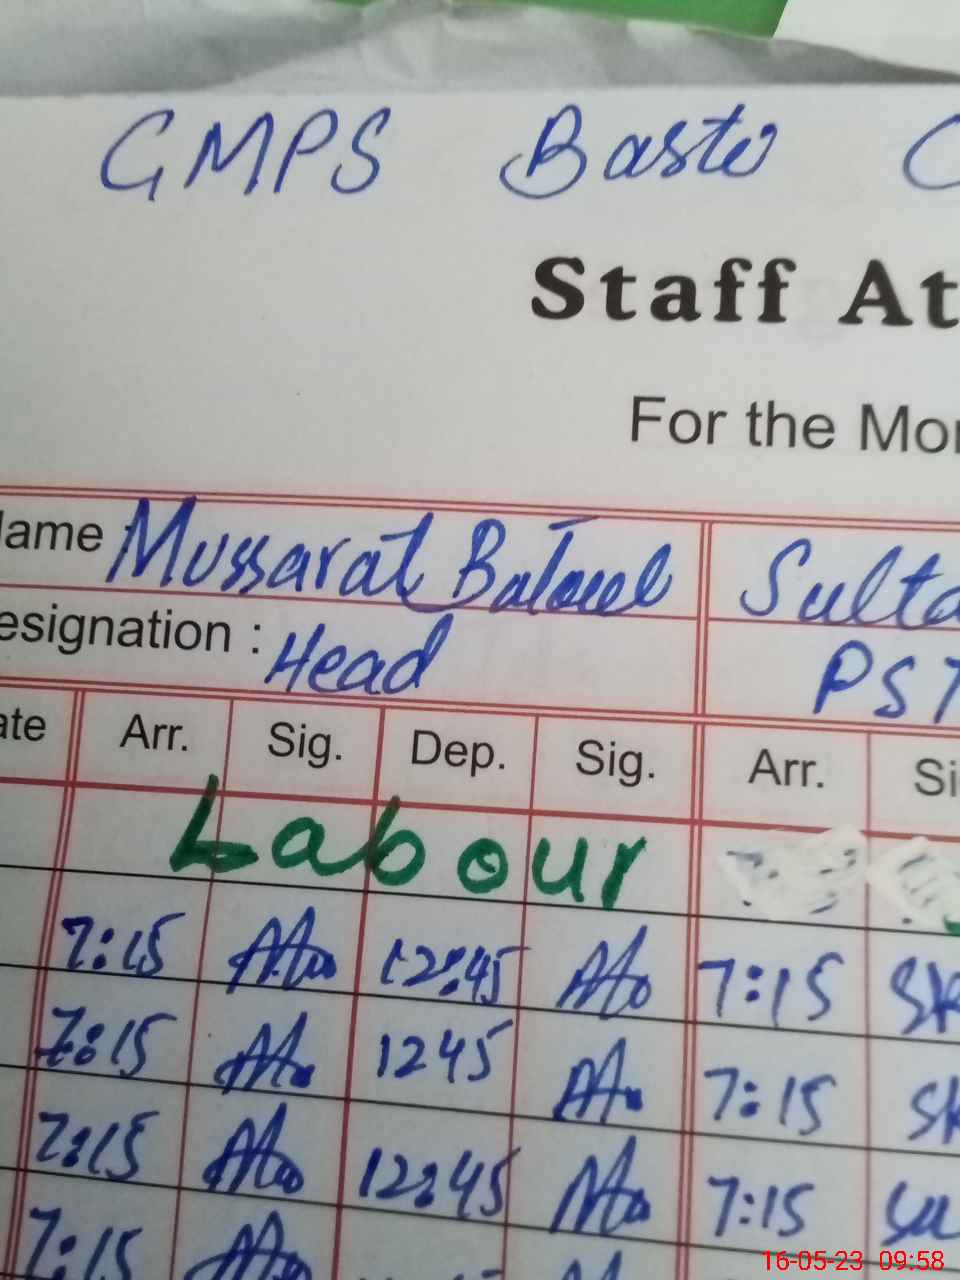 GMPS Basti
Staff At
For the Mo
Name Mussarat Batool Sulta
Designation : Head PST
ate Arr. Sig. Dep. Sig. Arr. Si
Labour
7:15 12:45 7:15 SK
7:15 1245 7:15 SK
7:15 12:45 7:15
7:15
16-05-23 09:58